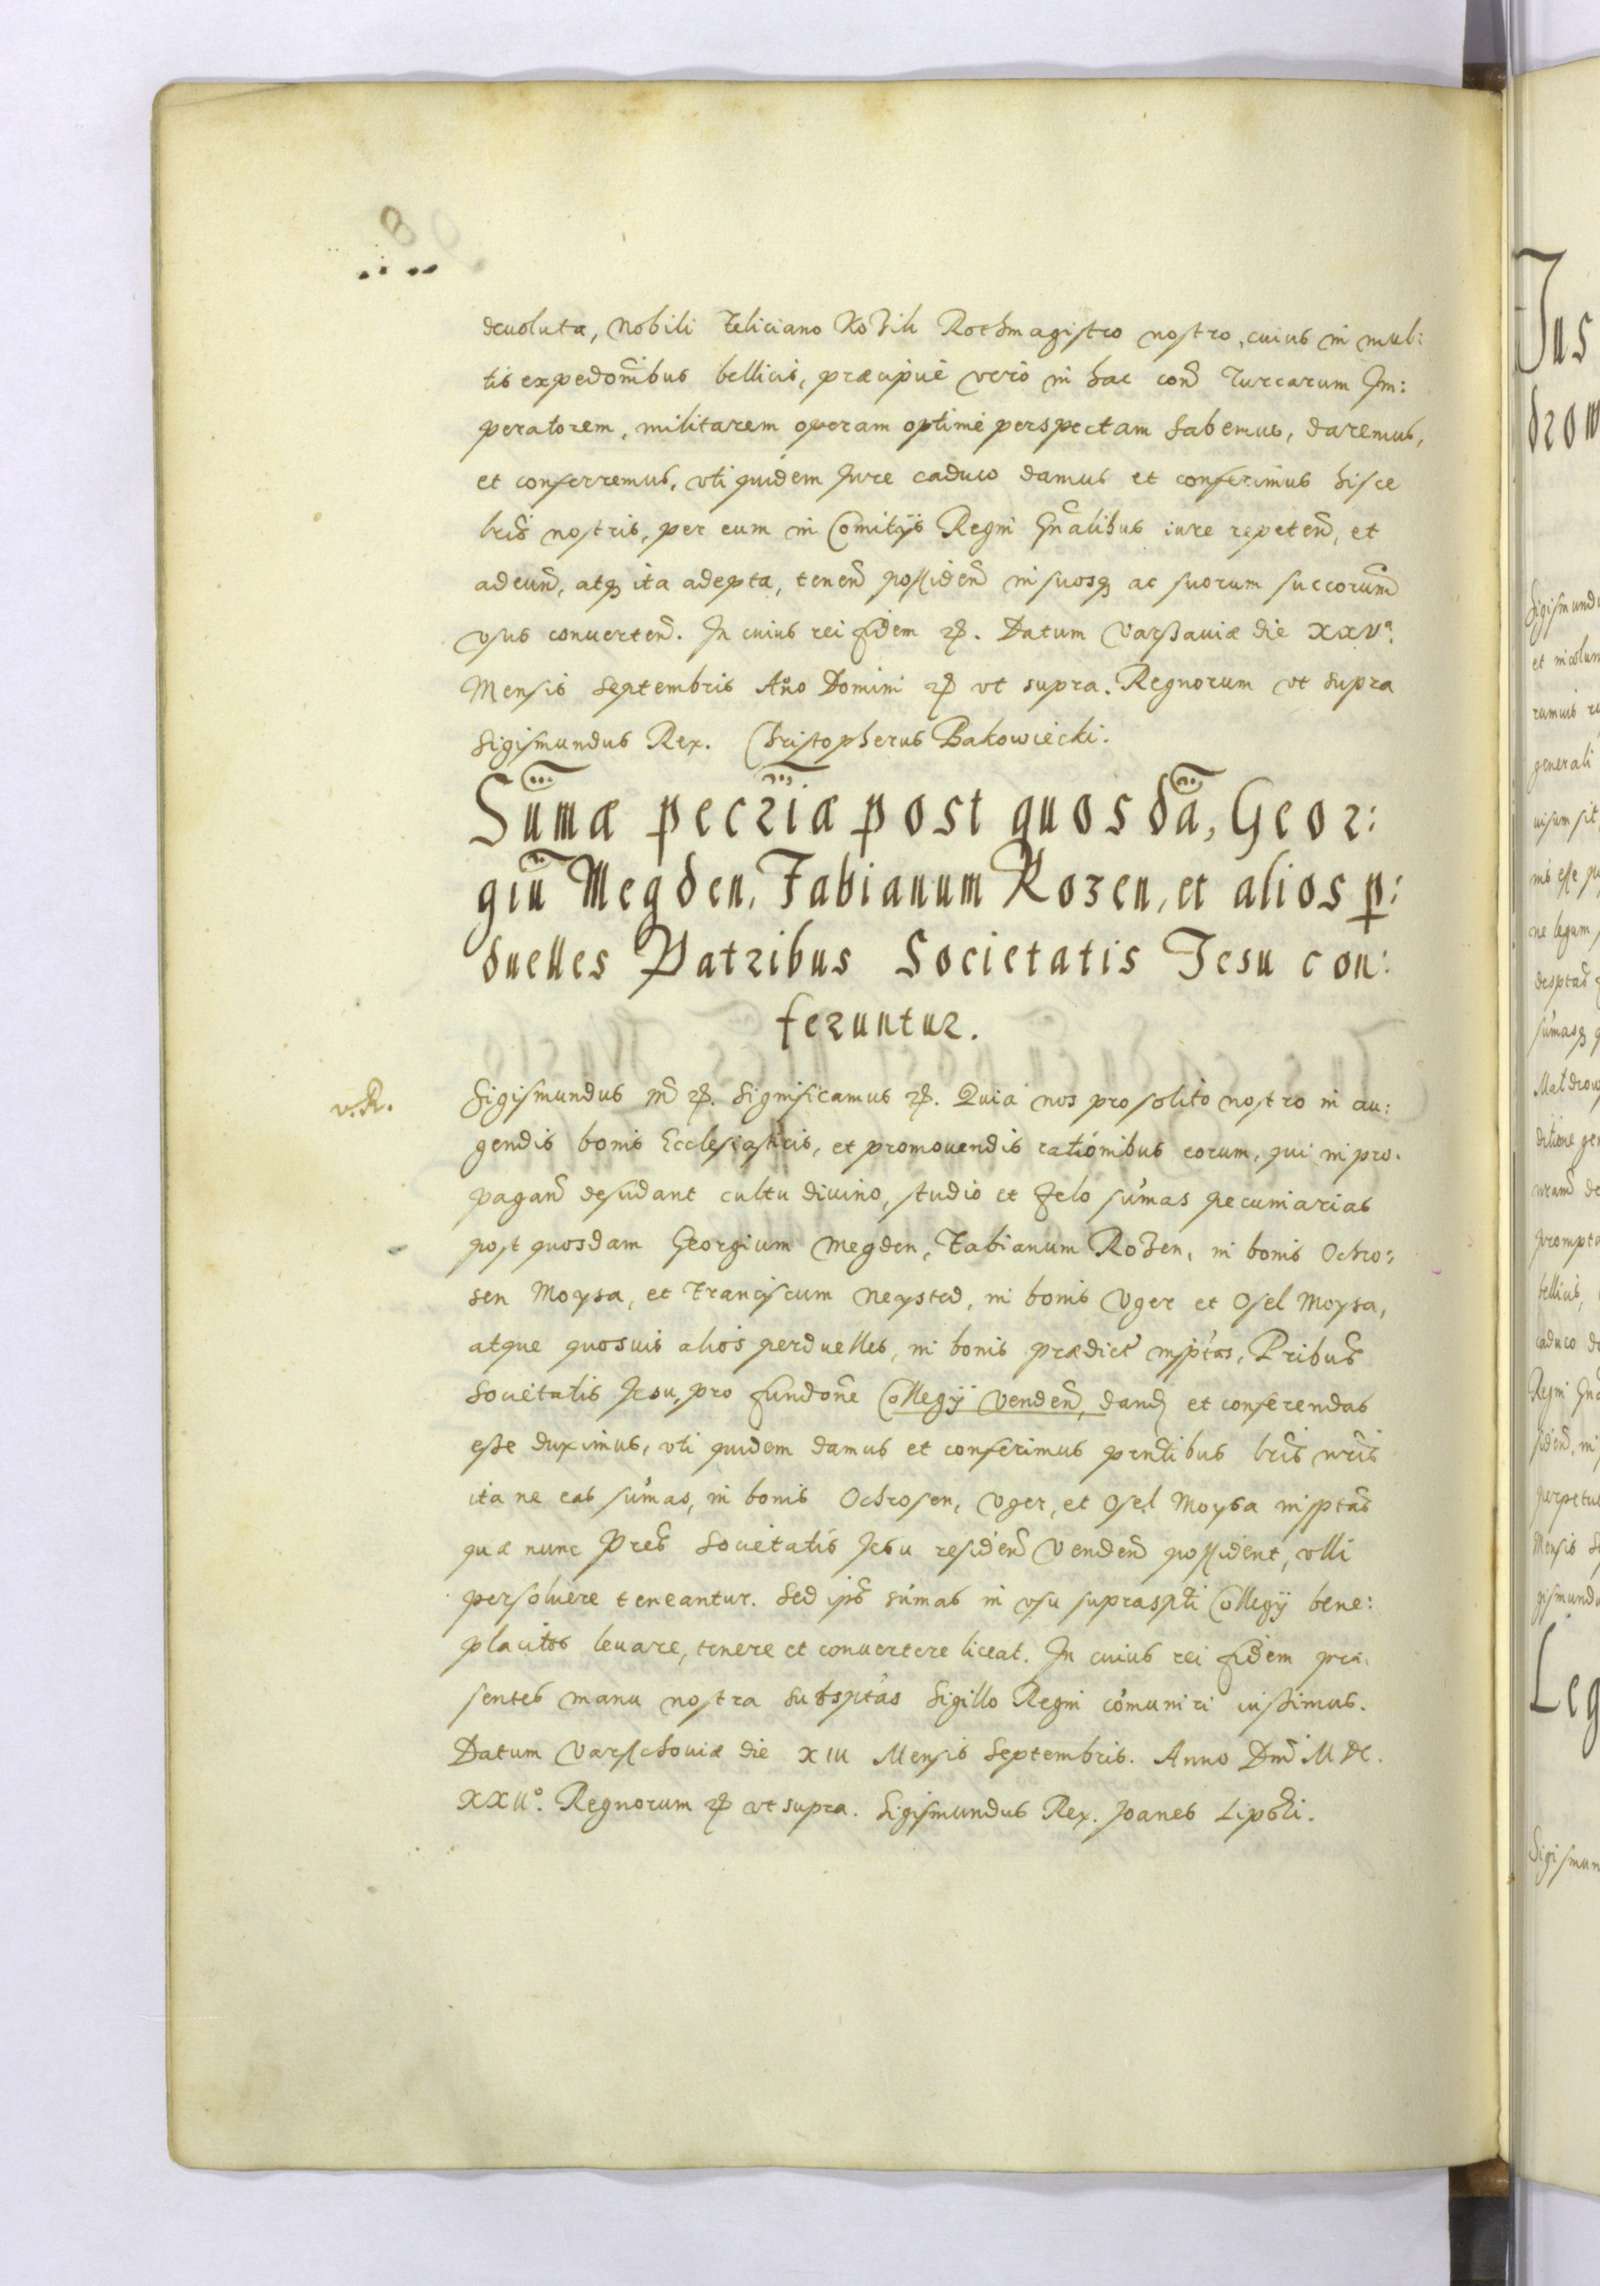 deuoluta, Nobili Feliciano Kobili Rothmagistro nostro, cuius in mul:
tis expedonibus bellicis, præcipuè verò in hac con̄ Turcarum Im:
peratorem, militarem operam optimè perspectam habemus, daremus,
et conferremus, vti quidem Iure caduco damus et conferimus hisce
lr̄is nostris, per eum in Comitijs Regni Gn̄alibus iure repeten̄, et
adeun̄, atq; ita adepta, tenen̄ possiden̄ in suosq; ac suorum succorum̄
vsus conuerten̄. In cuius rei fidem etc. Datum Varssauiæ die XXVa.
Mensis Septembris Año Domini etc vt supra. Regnorum vt supra
Sigismundus Rex. Christopherus Bakowiecki.
Sūmæ pecr̄iæ post quosdā, Geor:
giū Megden, Fabianum Rozen, et alios p:
duelles Patribus Societatis Iesu con:
feruntur.
v.R.
Sigismundus 3us etc. Significamus etc. Quia nos pro solito nostro in au:
gendis bonis Ecclesiasticis, et promouendis rationibus eorum, qui in pro.
pagan̄ desudant cultu diuino, studio et zelo sum̄as pecuniarias
post quosdam Georgium Megden, Fabianum Rozen, in bonis Ochro:
sen Moysa, et Franciscum Neysted, in bonis Vger et Osel Moysa,
atque quosuis aliòs perduelles, in bonis prædict̄ insp̄tas, P̄ribus
Societatis Iesu, pro fundon̄e Collegij Venden̄, dand et conferendas
esse duximus, vti quidem damus et conferimus pn̄tibus lr̄is nr̄is
ita ne eas sum̄as, in bonis Ochrosen, Vger, et Osel Moysa inspt̄as
quæ nunc Pr̄es Societatis Iesu residen̄ Venden̄ possident, vlli
persoluere teneantur. Sed ips̄ sum̄as in vsu suprasp̄ti Collegij bene:
placitos leuare, tenere et conuertere liceat. In cuius rei fidem præ.
sentes manu nostra subsp̄tas Sigillo Regni com̄uniri iussimus.
Datum Varschouiæ die XIII Mensis Septembris. Anno Dn̄i M DC.
XXIIo. Regnorum etc vt supra. Sigismundus Rex. Joanes Lipski.